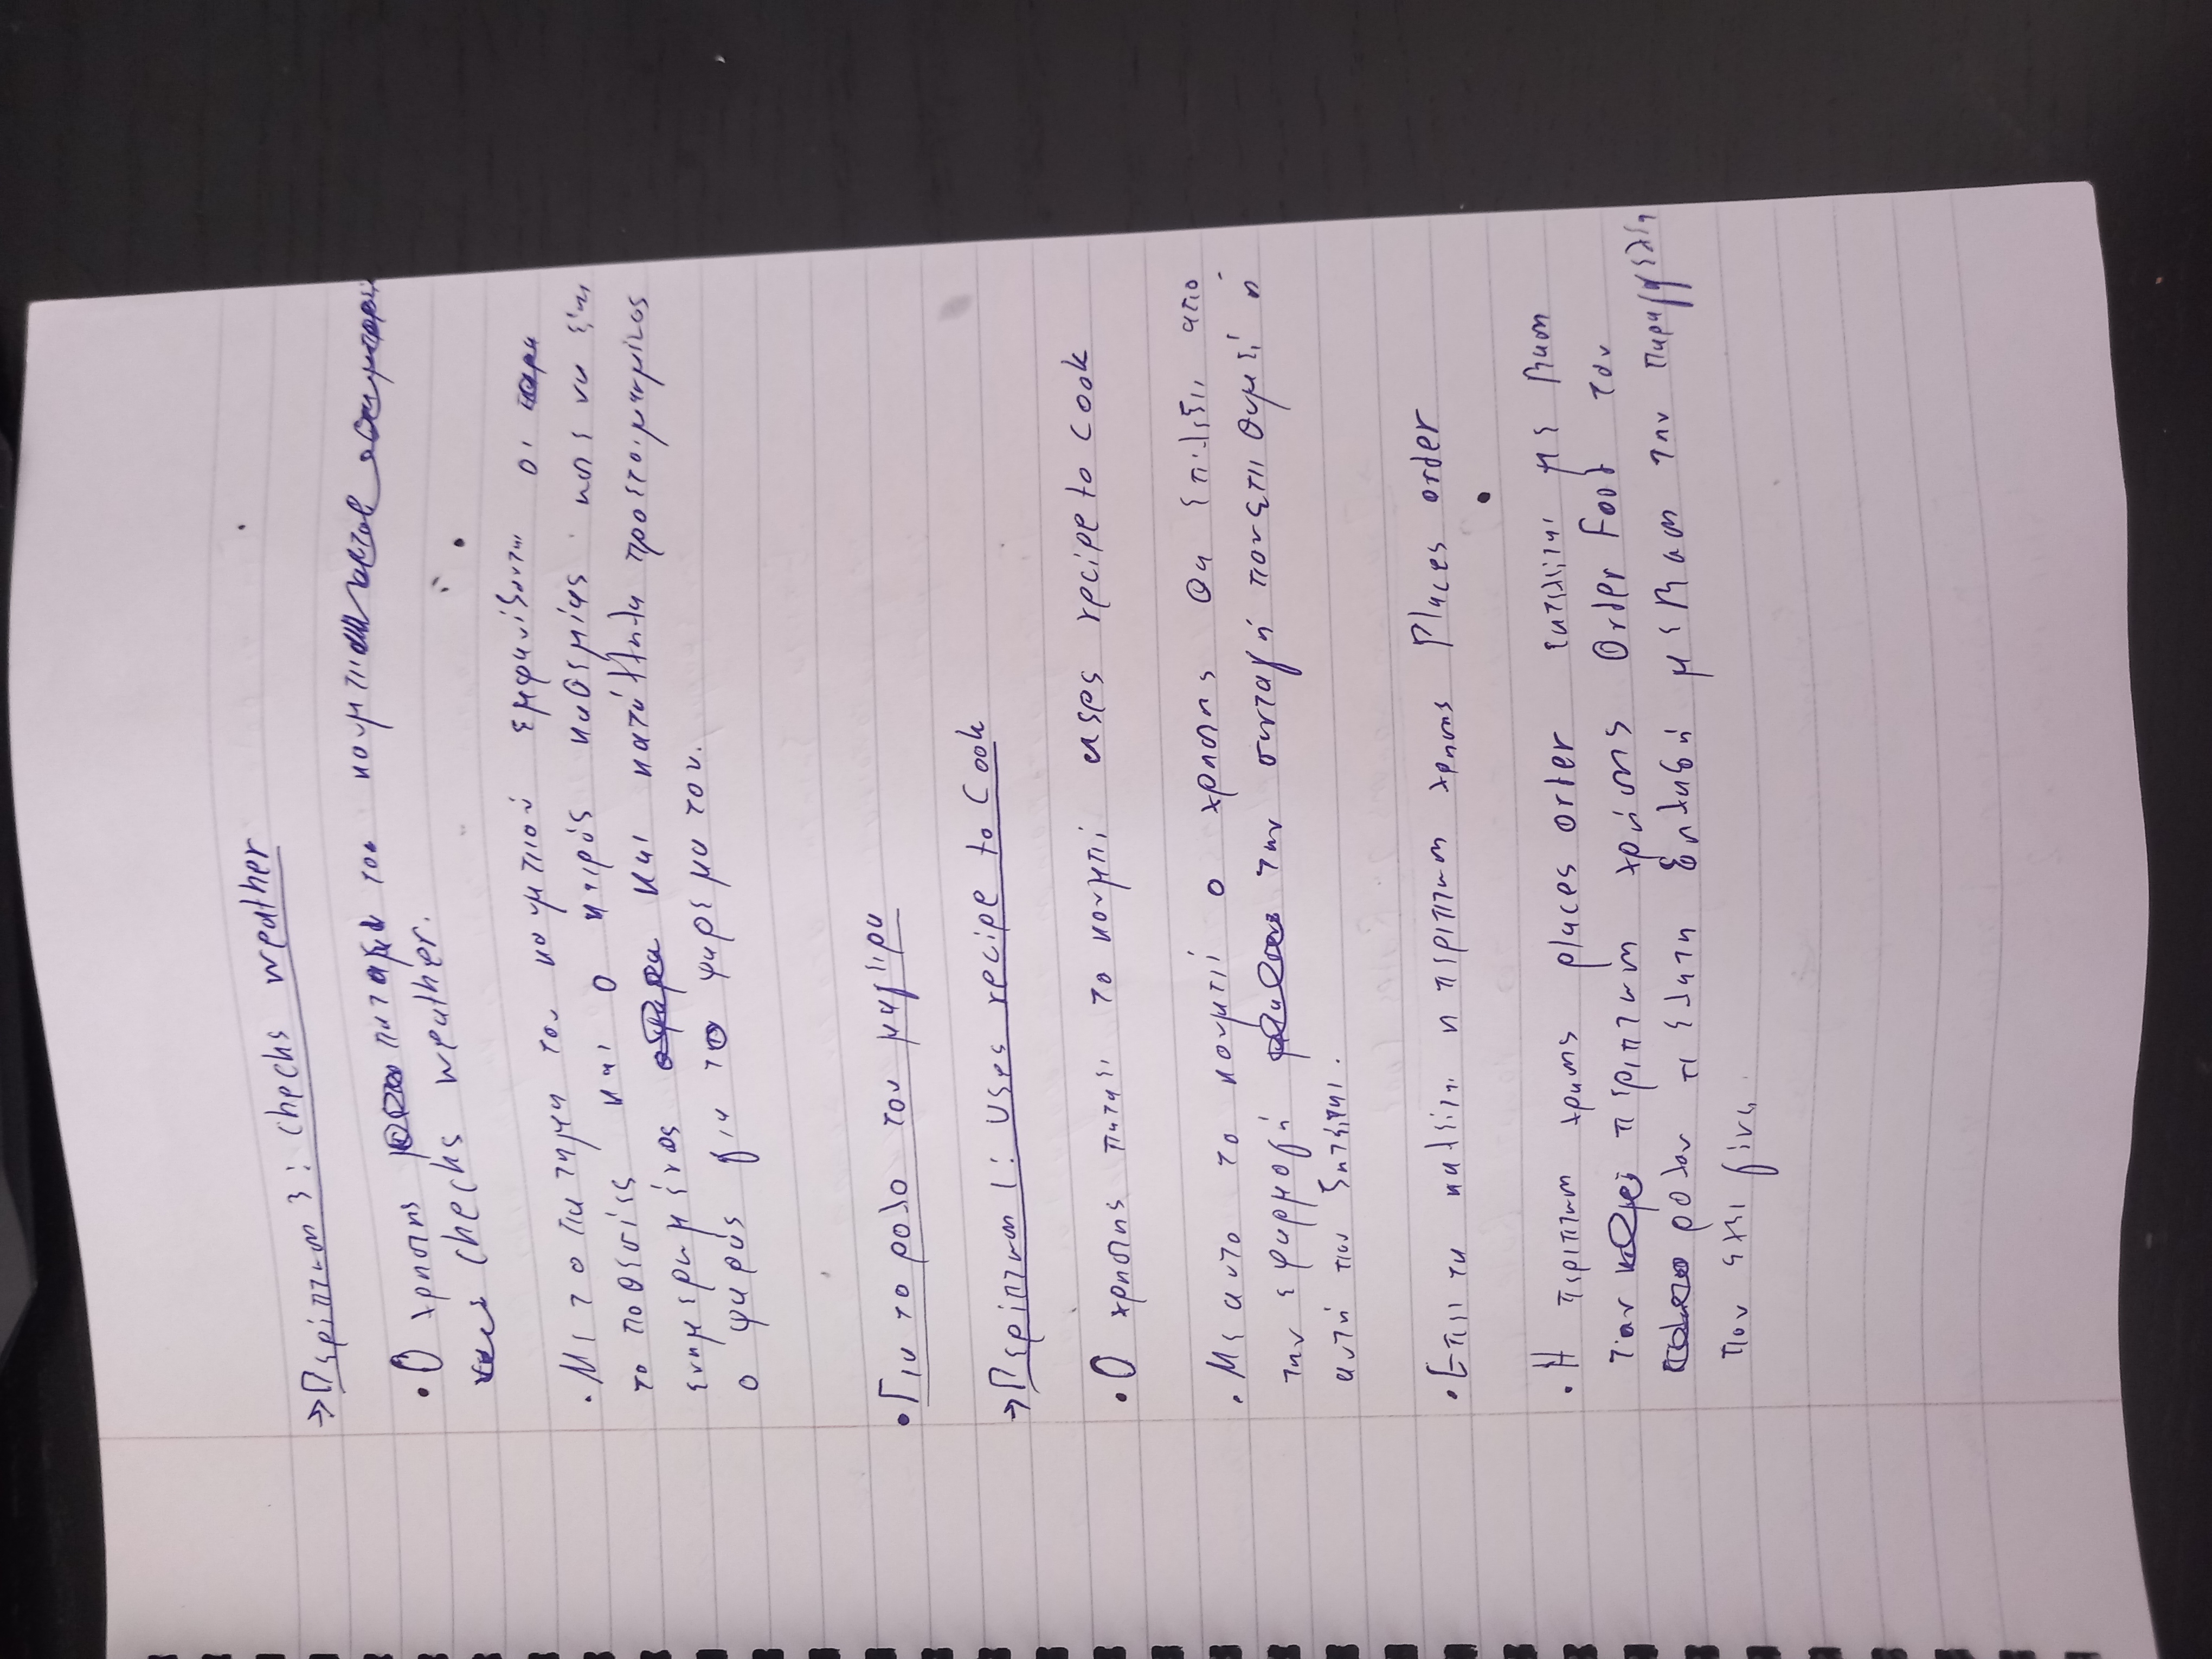 →Περίπτωση 3: Checks weather
• Ο χρήστης πατάει το κουμπι
checks weather.
• Με το πατημα του κουμπιού εμφανίζονται οι
τοποθεσίες και ο καιρός καθεμίας ωστε να είναι
ενημερωμένος και κατάλληλα προετοιμασμένος
ο ψαράς για το ψαρεμα του.
• Για το ρολο του μαγειρα
→Περίπτωση 1: Uses recipe to Cook
• Ο χρηστης παταει το κουμπι uses recipe to cook
• Με αυτο το κουμπί ο χρηστης θα επιλεξει απο
την εφαρμογή την συνταγή που επιθυμεί ή
αυτή που ζητείται.
• Επειτα καλείται η περιπτωση χρησης Places order
• Η περιπτωση χρησης places order εκτελείται με βαση
την περιπτωση χρήσης Order Food του
ρολου πελατη δηλαδή με βαση την παραγγελία
που εχει γίνει